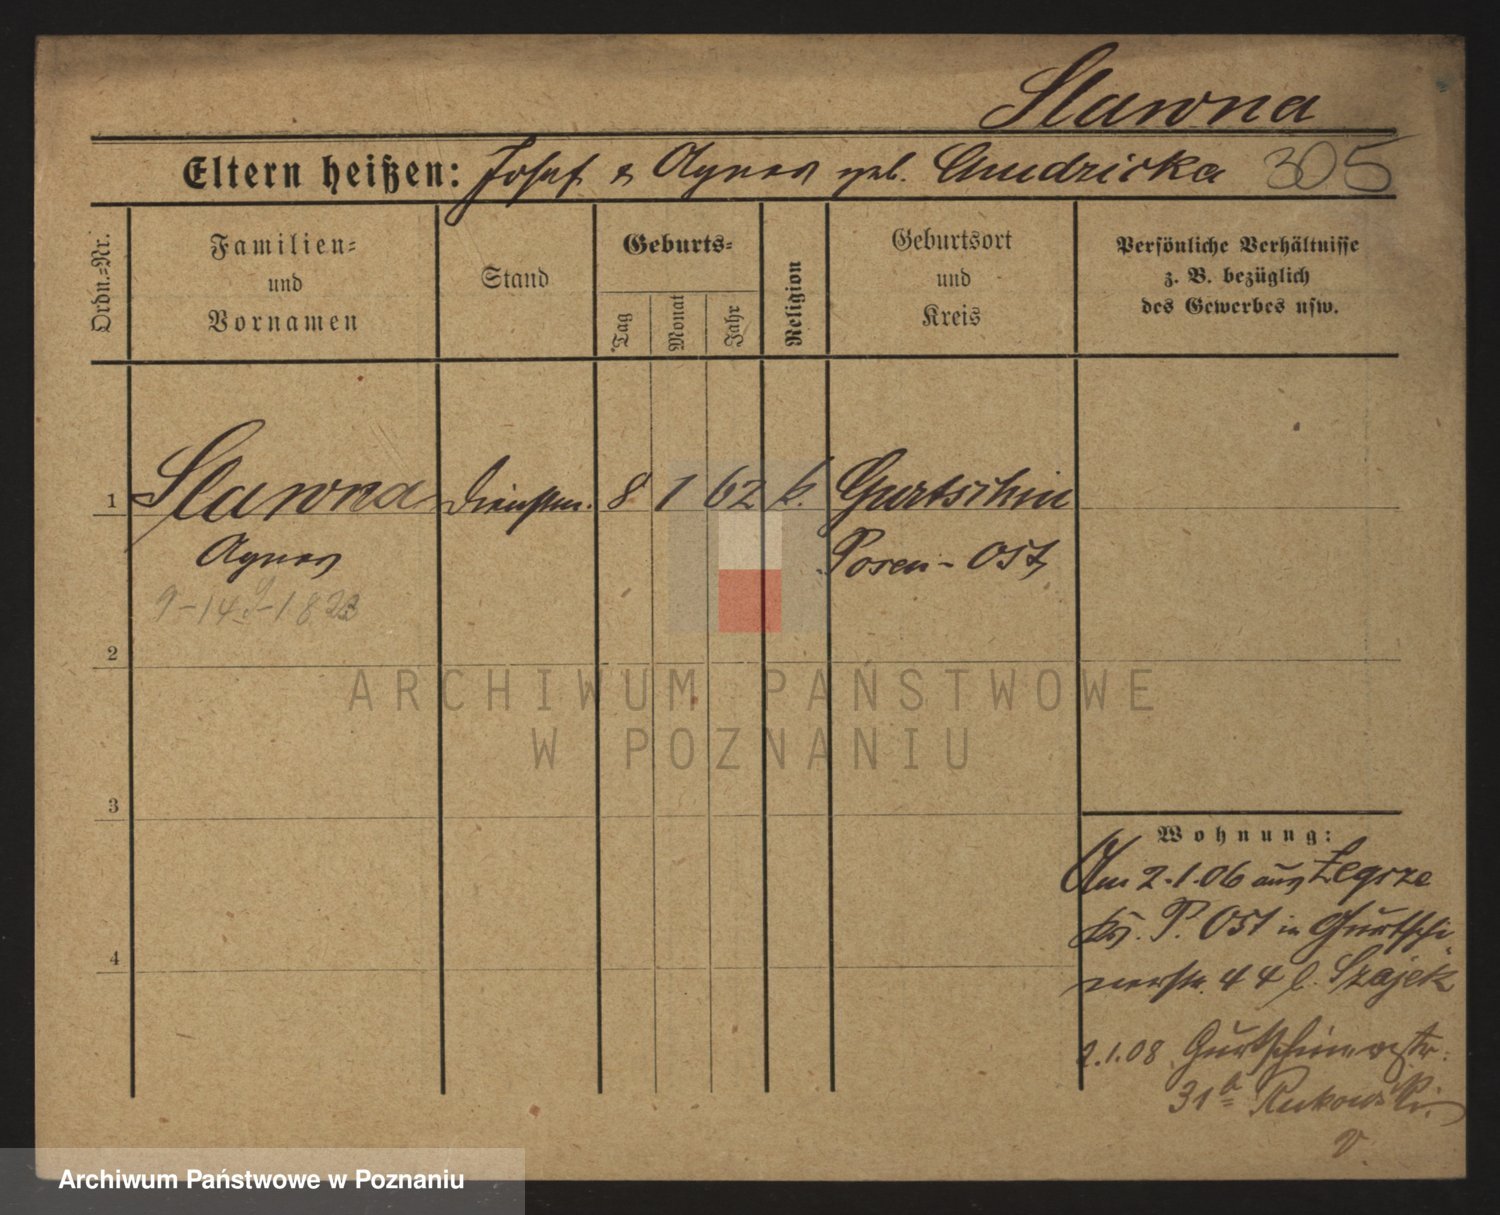 Slawna
Eltern heißen: Josef & Agnes geb. Chudzicka 305
Ordn.=Nr.
Familien=
und
Vornamen
Stand
Geburts=
Tag
Monat
Jahr
Religion
Geburtsort
und
Kreis
Persönliche Verhältnisse
z. B. bezüglich
des Gewerbes usw.
1 Slawna Dienstm. 8 1 62 k. Gurtschin
Agnes Posen-Ost
2
ARCHIWUM PAŃSTWOWE
W POZNANIU
3
Wohnung:
Am 2.1.06 aus Zegrze
Krs. P. Ost in Gurtschi-
nerstr. 44 b. Szajek
4
2.1.08 Gurtschinerstr.
31a Rukowski
Archiwum Państwowe w Poznaniu